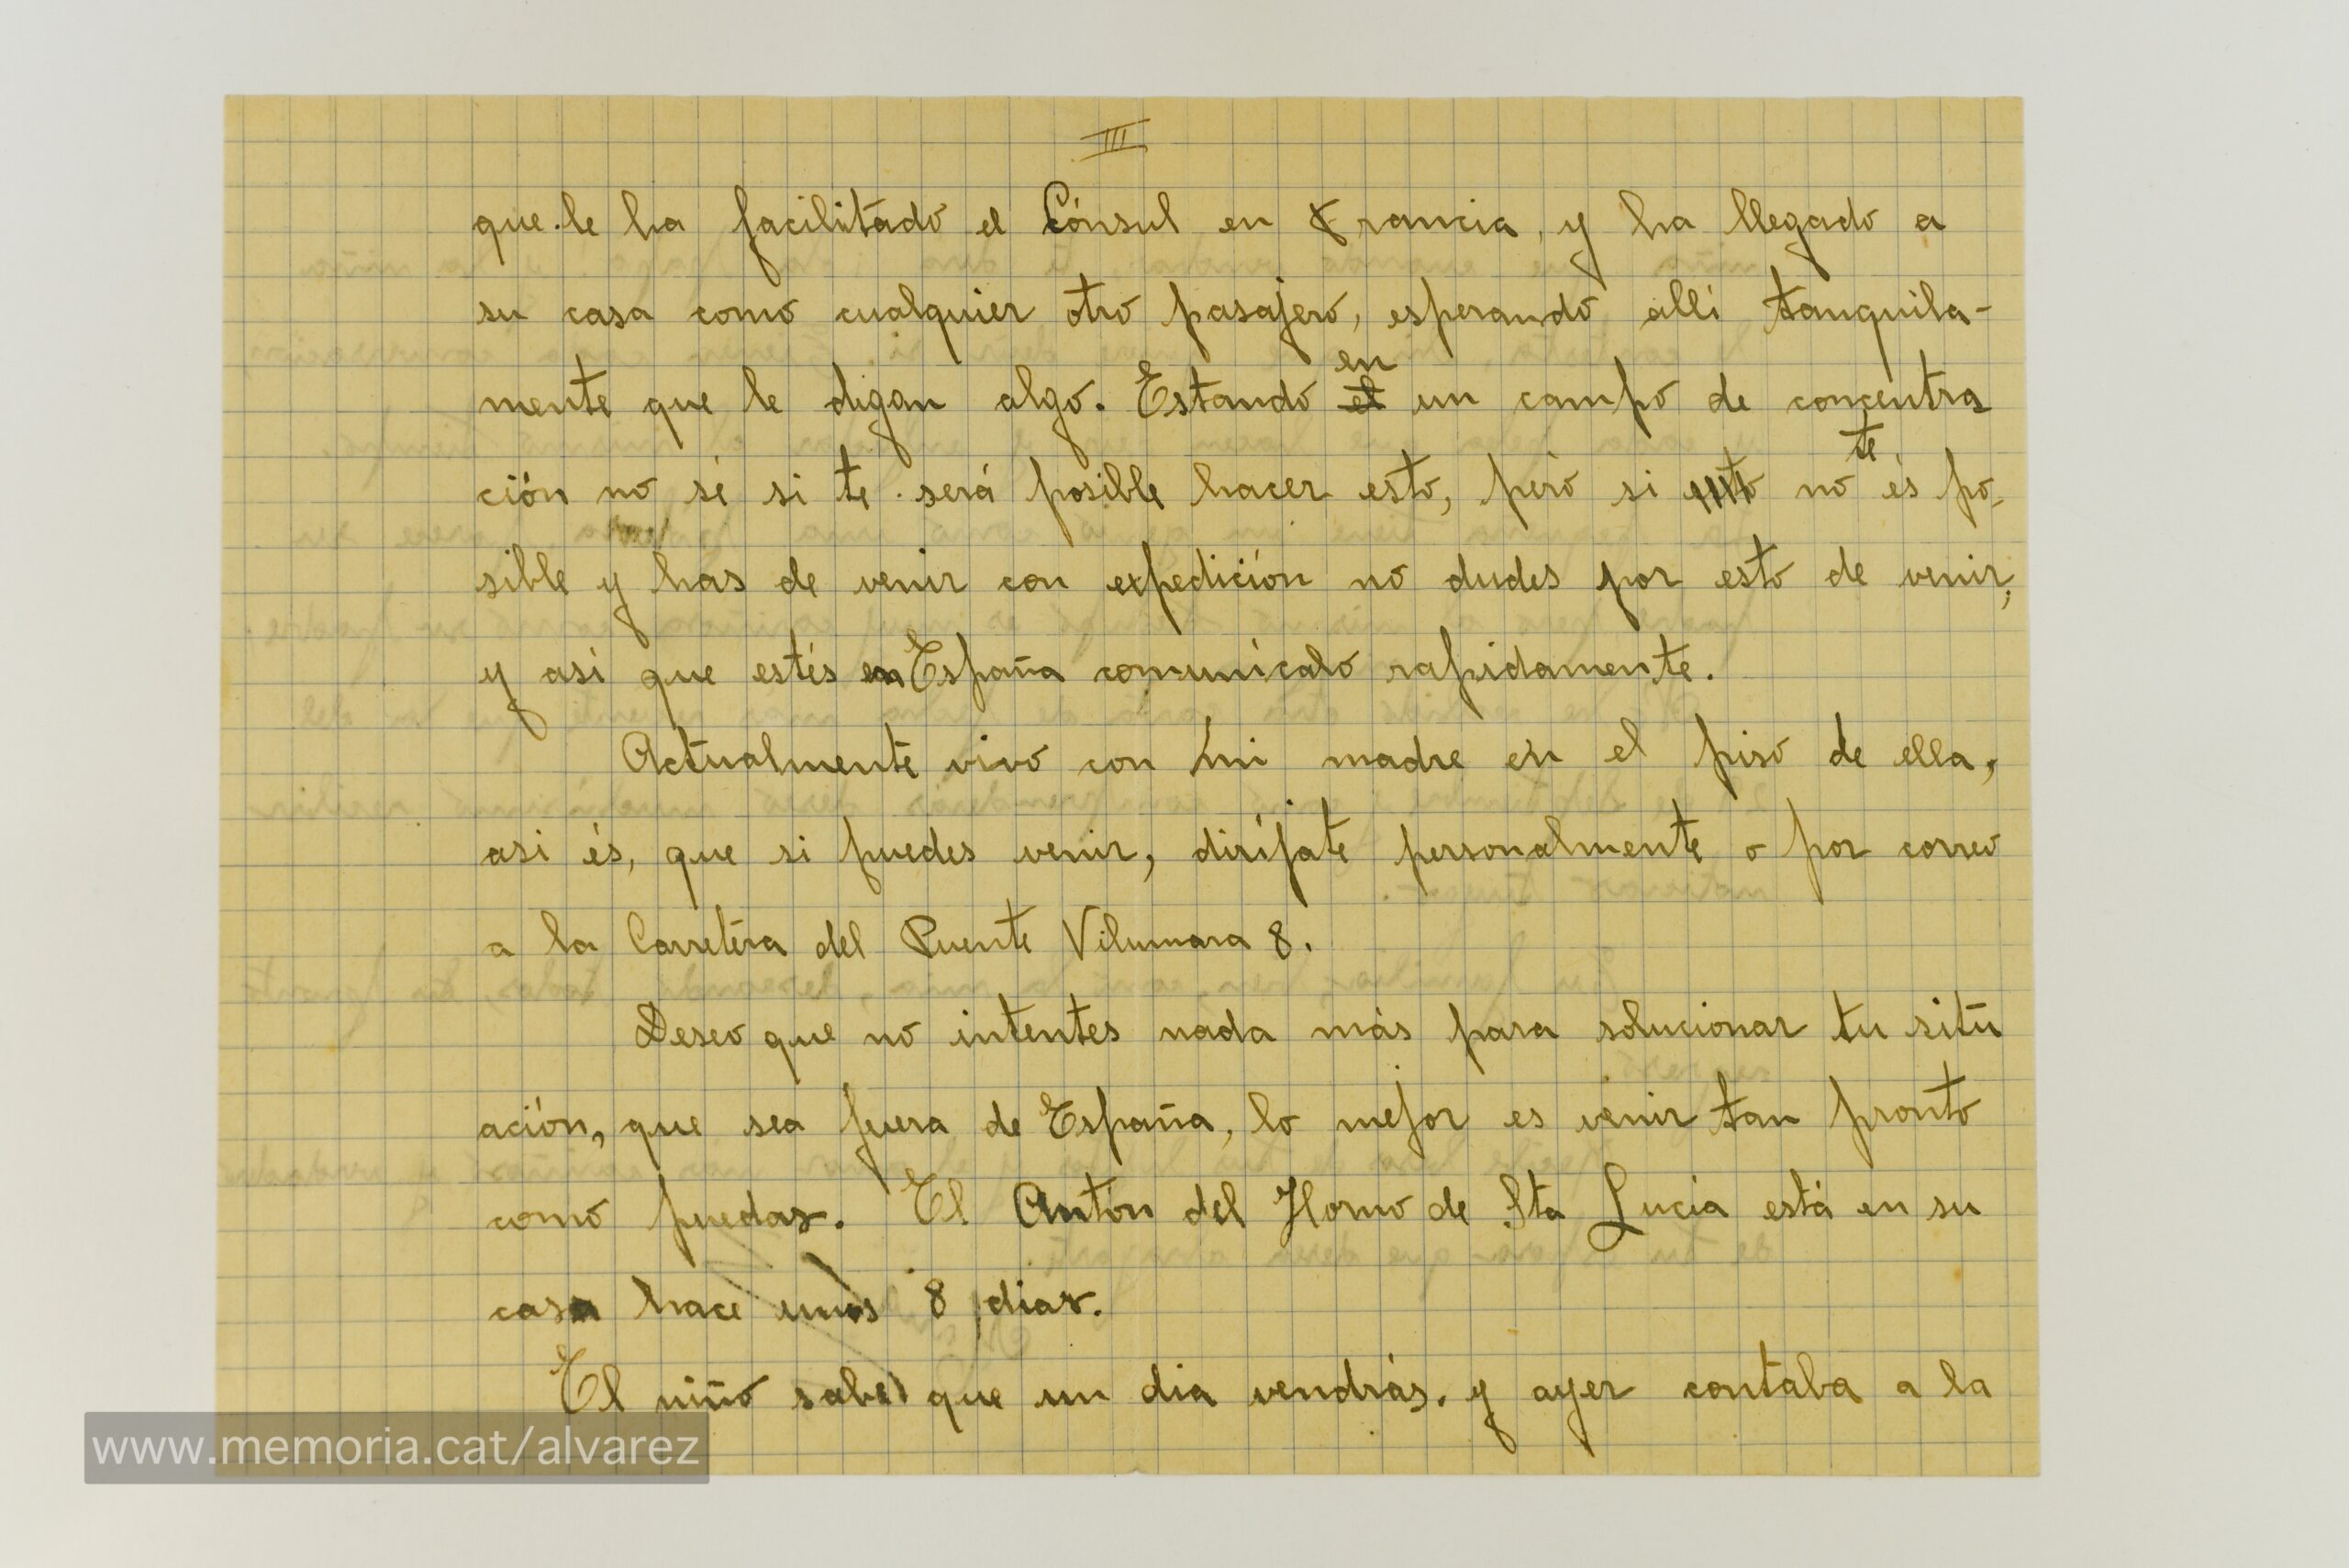 III
que le ha facilitado el Cónsul en Francia, y ha llegado a
su casa como cualquier otro pasajero, esperando allí tanquila-
mente que le digan algo. Estando en un campo de concentra
ción no sé si te será posible hacer esto, pero si esto no te és po-
sible y has de venir con expedición no dudes por esto de venir,
y asi que estés en España comunícalo rapidamente.
Actualmente vivo con mi madre en el piso de ella,
asi és, que si puedes venir, diríjate personalmente o por correo
a la Carretera del Puente Vilumara 8.
Deseo que no intentes nada más para solucionar tu situ
ación, que sea fuera de España, lo mejor es venir tan pronto
como puedas. El Antón del Horno de Sta Lucía está en su
casa hace unos 8 dias.
El niño sabe que un dia vendrás, y ayer contaba a la
www.memoria.cat/alvarez